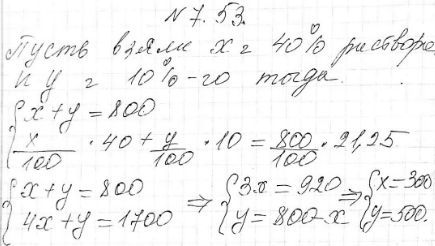 N 7.53.
Пусть взяли x г 40% раствора
и y г 10%-го тогда.
{x+y=800
{x/100 · 40 + y/100 · 10 = 800/100 · 21,25
{x+y=800 {4x+y=1700 ⇒ {3x=920 {y=800-x ⇒ {x=300 {y=500.